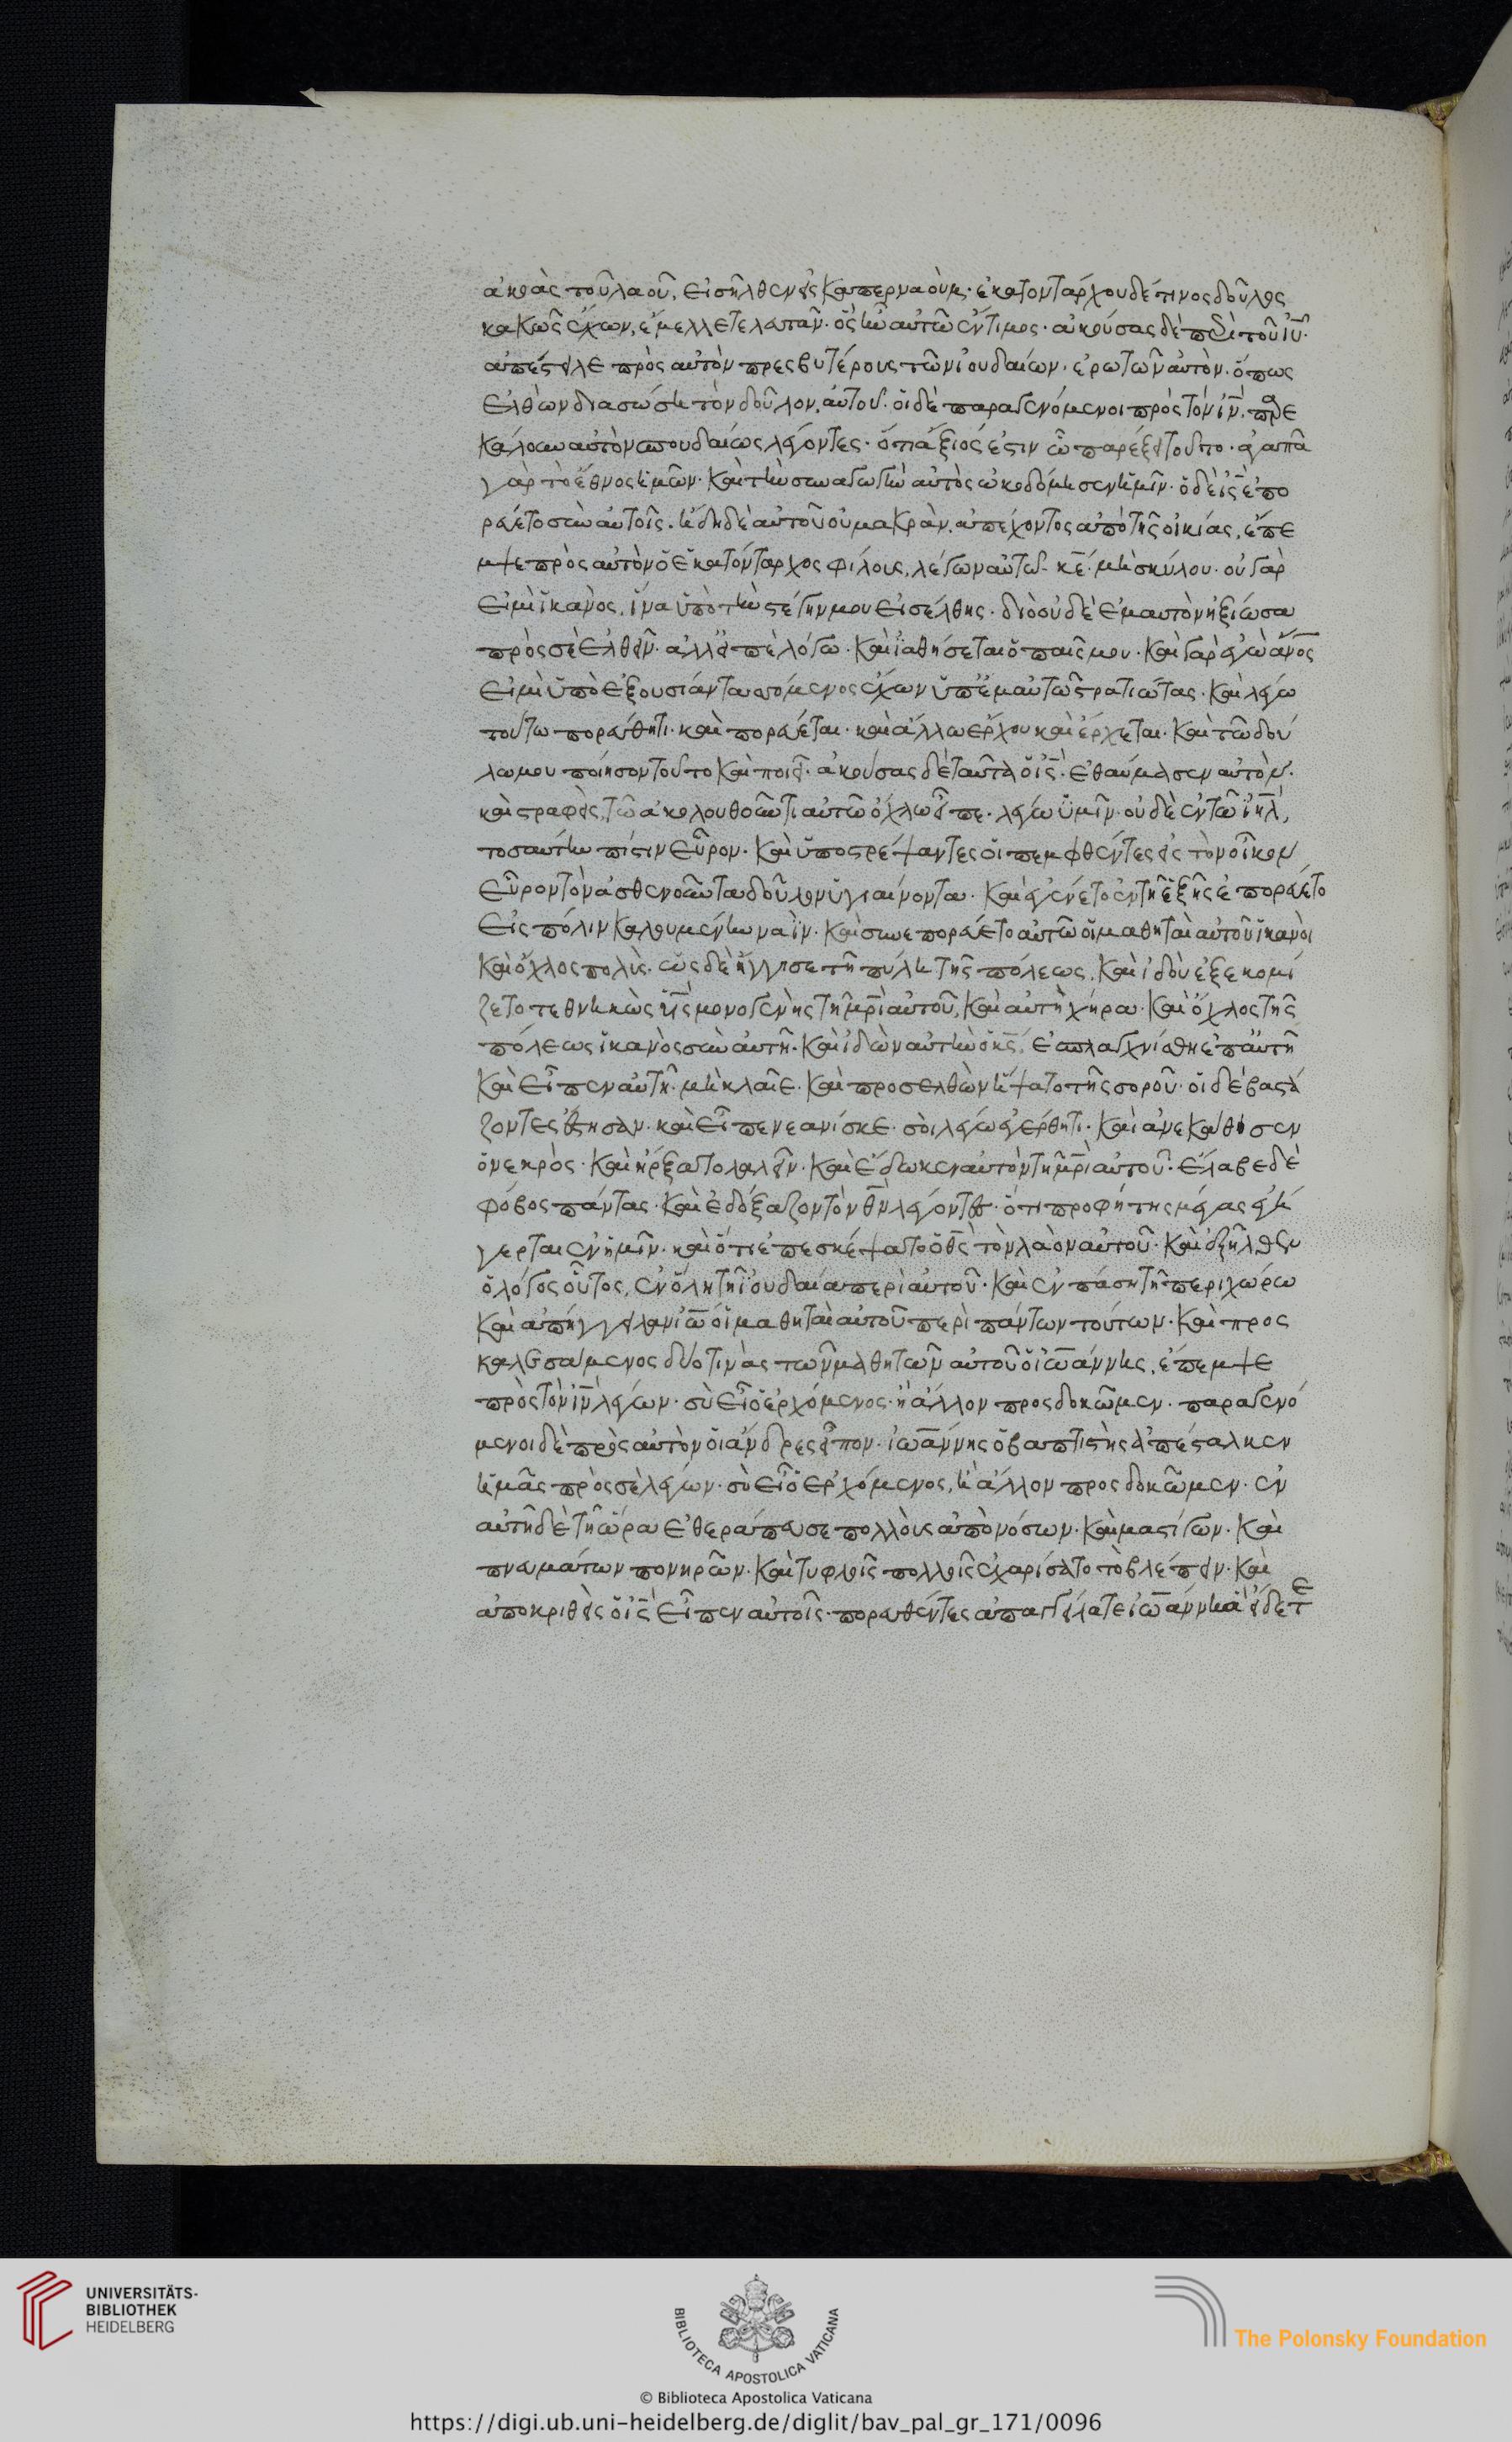 ἀκοὰς τοῦ λαοῦ, εἰσῆλθεν εἰς καπερναούμ· ἑκατοντάρχου δέ τινος δοῦλος
κακῶς ἔχων, ἔμελλε τελευτᾶν· ὃς ἦν αὐτῶ ἔντιμος· ἀκούσας δὲ περὶ τοῦ ἰῦ·
ἀπέστειλε πρὸς αὐτὸν πρεσβυτέρους τῶν ἰουδαίων· ἐρωτῶν αὐτὸν· ὅπως
ἐλθὼν διασώση τὸν δοῦλον αὐτοῦ· οἱ δὲ παραγενόμενοι πρὸς τὸν ἰν, παρε
κάλουν αὐτὸν σπουδαίως λέγοντες· ὅτι ἄξιός ἐστιν ὧ παρέξει τοῦτο· ἀγαπᾶ
γὰρ τὸ ἔθνος ἡμῶν· καὶ τὴν συναγωγὴν αὐτὸς ὠκοδόμησεν ἡμῖν· ὁ δὲ ις ἐπο
ρεύετο σὺν αὐτοῖς· ἤδη δὲ αὐτοῦ οὐ μακρὰν ἀπέχοντος ἀπὸ τῆς οἰκίας, ἔπε
μψε πρὸς αὐτὸν ὁ ἑκατόνταρχος φίλους, λέγων αὐτῶ· κε μὴ σκύλου· οὐ γάρ
εἰμὶ ἱκανὸς, ἵνα ὑπὸ τὴν στέγην μου εἰσέλθης· διὸ οὐδὲ ἐμαυτὸν ἠξίωσα
πρὸς σὲ ἐλθεῖν· ἀλλ' εἰπὲ λόγω· καὶ ἰαθήσεται ὁ παῖς μου· καὶ γὰρ ἐγὼ ἄνος
εἰμὶ ὑπὸ ἐξουσίαν τασσόμενος ἔχων ὑπ' ἐμαυτῶ στρατιώτας· καὶ λέγω
τούτω πορεύθητι· καὶ πορεύεται· καὶ ἄλλω ἔρχου καὶ ἔρχεται· καὶ τῶ δού
λω μου ποίησον τοῦτο καὶ ποιεῖ· ἀκούσας δὲ ταῦτα ὁ ις· ἐθαύμασεν αὐτὸν·
καὶ στραφεὶς, τῶ ἀκολουθοῦντι αὐτῶ ὄχλω εἶπε· λέγω ὑμῖν· οὐδὲ ἐν τῶ ιηλ,
τοσαύτην πίστιν εὗρον· καὶ ὑποστρέψαντες οἱ πεμφθέντες εἰς τὸν οἶκον
εὗρον τὸν ἀσθενοῦντα δοῦλον ὑγιαίνοντα· καὶ ἐγένετο ἐν τῆ ἑξῆς ἐπορεύετο
εἰς πόλιν καλουμένην ναΐν· καὶ συνεπορεύετο αὐτῶ οἱ μαθηταὶ αὐτοῦ ἱκανοὶ
καὶ ὄχλος πολὺς· ὡς δὲ ἤγγισε τῆ πύλη τῆς πόλεως, καὶ ἰδοὺ ἐξεκομί
ζετο τεθνηκὼς υἱς μονογενὴς τῆ μρὶ αὐτοῦ, καὶ αὐτὴ χήρα· καὶ ὄχλος τῆς
πόλεως ἱκανὸς σὺν αὐτῆ· καὶ ἰδὼν αὐτὴν ὁ κς, ἐσπλαγχνίσθη ἐπ' αὐτῆ
καὶ εἶπεν αὐτῆ· μὴ κλαῖε· καὶ προσελθὼν ἥψατο τῆς σοροῦ· οἱ δὲ βαστά
ζοντες ἔστησαν· καὶ εἶπε νεανίσκε· σοὶ λέγω ἐγέρθητι· καὶ ἀνεκάθισεν
ὁ νεκρὸς· καὶ ἤρξατο λαλεῖν· καὶ ἔδωκεν αὐτὸν τῆ μρὶ αὐτοῦ· ἔλαβε δὲ
φόβος πάντας· καὶ ἐδόξαζον τὸν θν λέγοντες· ὅτι προφήτης μέγας ἐγή
γερται ἐν ἡμῖν· καὶ ὅτι ἐπεσκέψατο ὁ θς τὸν λαὸν αὐτοῦ· καὶ ἐξῆλθεν
ὁ λόγος οὗτος, ἐν ὅλη τῆ ἰουδαία περὶ αὐτοῦ· καὶ ἐν πάση τῆ περιχώρω
καὶ ἀπήγγειλαν ἰω οἱ μαθηταὶ αὐτοῦ περὶ πάντων τούτων· καὶ προς
καλεσάμενος δύο τινὰς τῶν μαθητῶν αὐτοῦ ὁ ἰωάννης, ἔπεμψε
πρὸς τὸν ἰν λέγων· σὺ εἶ ὁ ἐρχόμενος· ἢ ἄλλον προσδοκῶμεν· παραγενό
μενοι δὲ πρὸς αὐτὸν οἱ ἄνδρες εἶπον· ἰωάννης ὁ βαπτιστὴς ἀπέσταλκεν
ἡμᾶς πρὸς σὲ λέγων· σὺ εἶ ὁ ἐρχόμενος, ἢ ἄλλον προσδοκῶμεν· ἐν
αὐτῆ δὲ τῆ ὥρα ἐθεράπευσε πολλοὺς ἀπὸ νόσων· καὶ μαστίγων· καὶ
πνευμάτων πονηρῶν· καὶ τυφλοῖς πολλοῖς ἐχαρίσατο τὸ βλέπειν· καὶ
ἀποκριθεὶς ὁ ις εἶπεν αὐτοῖς· πορευθέντες ἀπαγγείλατε ἰωάννη ἃ εἴδετε
UNIVERSITÄTS-
BIBLIOTHEK
HEIDELBERG
BIBLIOTECA APOSTOLICA VATICANA
The Polonsky Foundation
© Biblioteca Apostolica Vaticana
https://digi.ub.uni-heidelberg.de/diglit/bav_pal_gr_171/0096